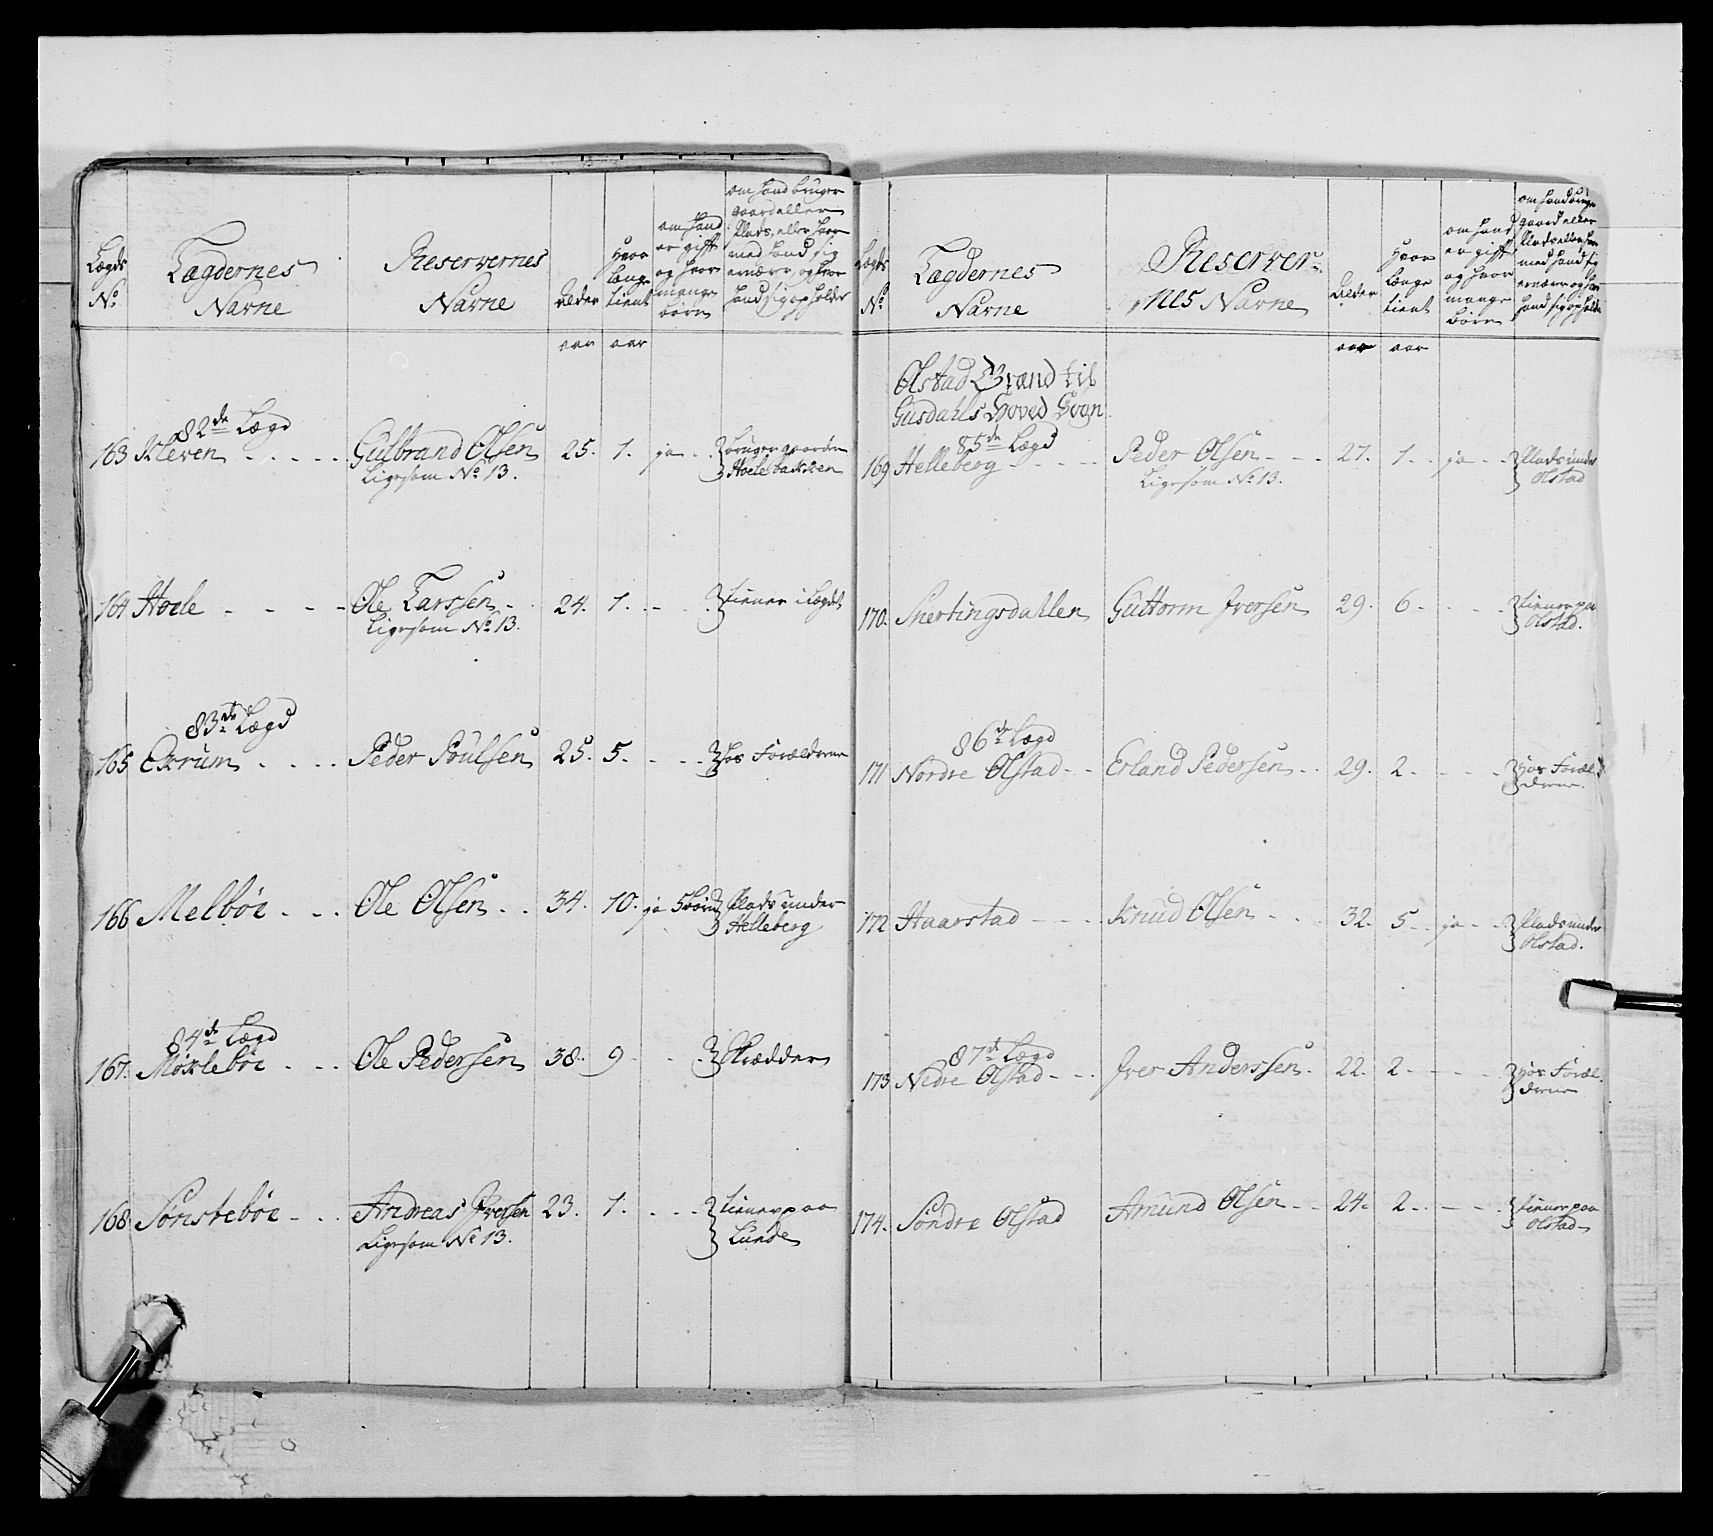 Lægds No
Lægdernes Navne
Reservernes Navne
Alder
Hvor længe tient
om hand er gift og hvor mange børn
om hand bruger gaard eller Plads, eller hvor med hand sig ernærer, og hvor hand sig opholder
aar aar
82de Lægd
163 Kleven - - - - Gulbrand Olsen 25. 1. ja - - bruger gaarden
Ligesom No 13. Hoelebakken
164 Hoele - - - - Ole Larssen - 24. 1. - - - tiener i Lægdet
Ligesom No 13.
83de Lægd
165 Exrum - - - - Peder Poulsen 25. 5. - - - hos Forælderne
166 Melbøe - - - Ole Olsen - - 34. 10. ja 5 børn Plads under
Helleberg
84de Lægd
167. Møxlebøe - - - Ole Pedersen 38. 9 - - - Skrædder
168. Sønstebøe - - - Andreas Iversen 23. 1. - - - tiener paa
Ligesom No 13. Lunde
Lægds No
Lægdernes Navne
Reserver-
nes Navne
Alder
Hvor længe tient
om hand er gift og hvor mange børn
om hand bruger gaard eller Plads eller hvor med hand sig ernærer og hvor hand sig opholder
aar aar
Olstad Grænd til
Gusdahls Hoved Sogn
85de Lægd
169 Helleberg - - - - Peder Olsen - - - 27. 1 - - ja - - Plads under
Ligesom No 13. Olstad
170. Snertingsdahlen Guttorm Iversen 29. 6 - - - tiener paa
Olstad.
86de Lægd
171 Nordre Olstad - - Erland Pedersen - - 29. 2 - - - - hos Foræl-
derne.
172 Haarstad - - - - Knud Olsen - - - 32. 5 - - ja - - Plads under
Olstad.
87de Lægd
173 Nedre Olstad - - - Iver Anderssen - 22. 2 - - - - hos Foræl-
derne
174. Søndre Olstad Amund Olsen - - 24. 2 - - - - tiener paa
Olstad -